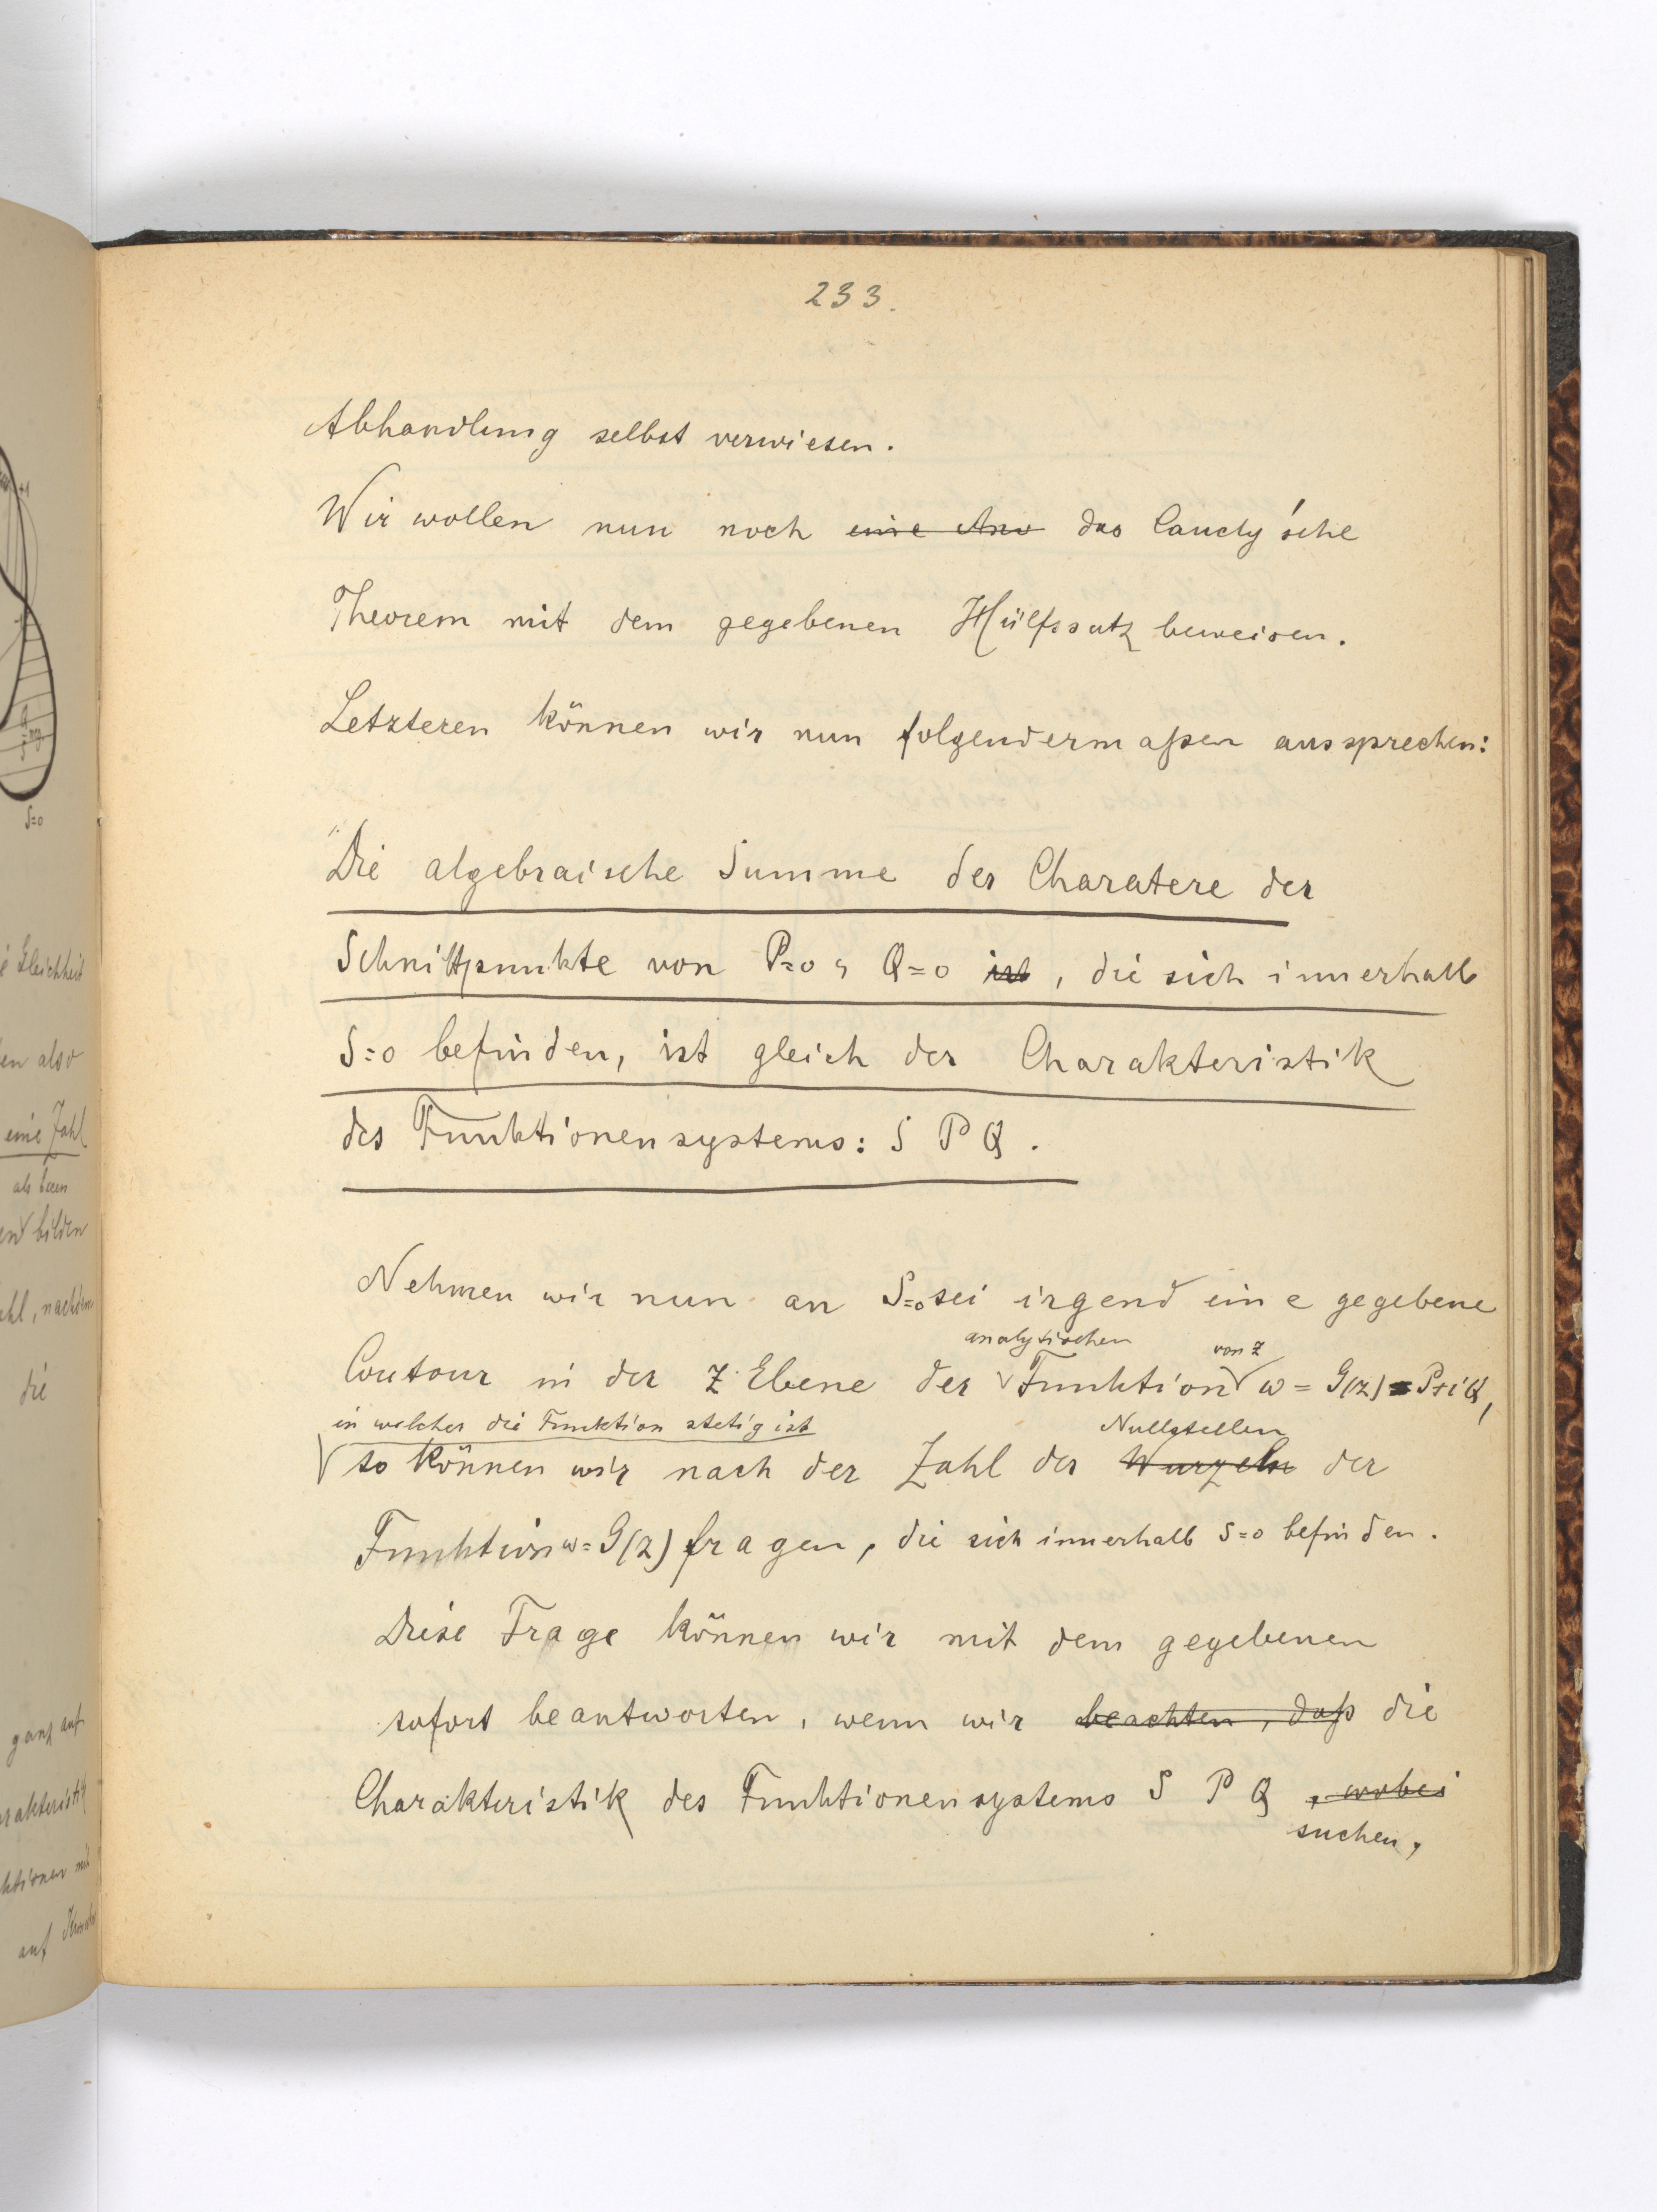 233.
Abhandlung selbst verwiesen.
Wir wollen nun noch eine Anw das Caucly'sche
Theorem mit dem gegebenen Hülfssatz beweisen.
Letzteren können wir nun folgendermaßen aussprechen:
"Die algebraische Summe der Charatere der
Schnittpunkte von P=0, Q=0 ist, die sich innerhalb
S=0 befinden, ist gleich der Charakteristik
des Funktionensystems: S P Q.
Nehmen wir nun an S=0 sei irgend eine gegebene
analytischen von z
Contour in der z Ebene der Funktion w = G(z) = P+iQ,
in welcher die Funktion stetig ist Nullstellen
so können wir nach der Zahl der Wurzeln der
Funktion w=G(z) fragen, die sich innerhalb S=0 befinden.
Diese Frage können wir mit dem gegebenen
sofort beantworten, wenn wir beachten, daß die
Charakteristik des Funktionensystems S P Q , wobei
suchen,
S=0
Gleichheit
en also
eine Zahl
als deren
bilden
ahl, nachdem
die
ganz auf
arakteristik
ktionen
auf